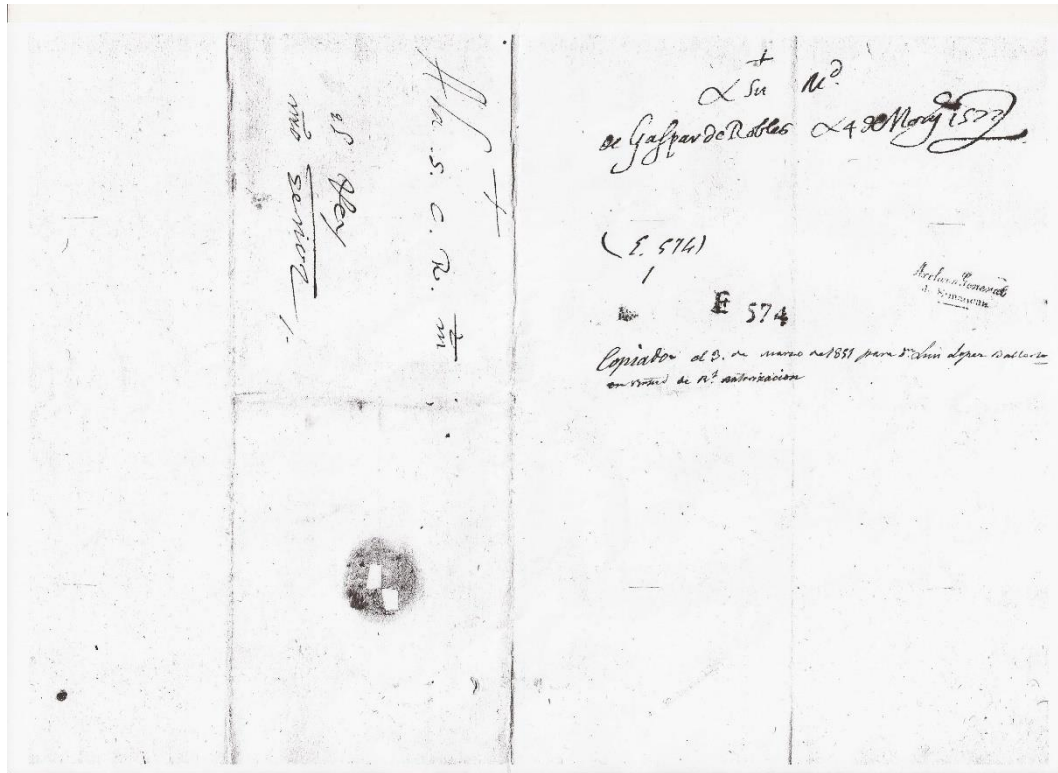 A la S. C. R. M
el Rey
nro señor
+
A Su Md
de Gaspar de Robles A 4 de 1577
(E. 574)
E 574
Archivo General
de Simancas
Copiado el 3. de marzo de 1851 para Dn Luis Lopez
en virtud de Rl autorizacion